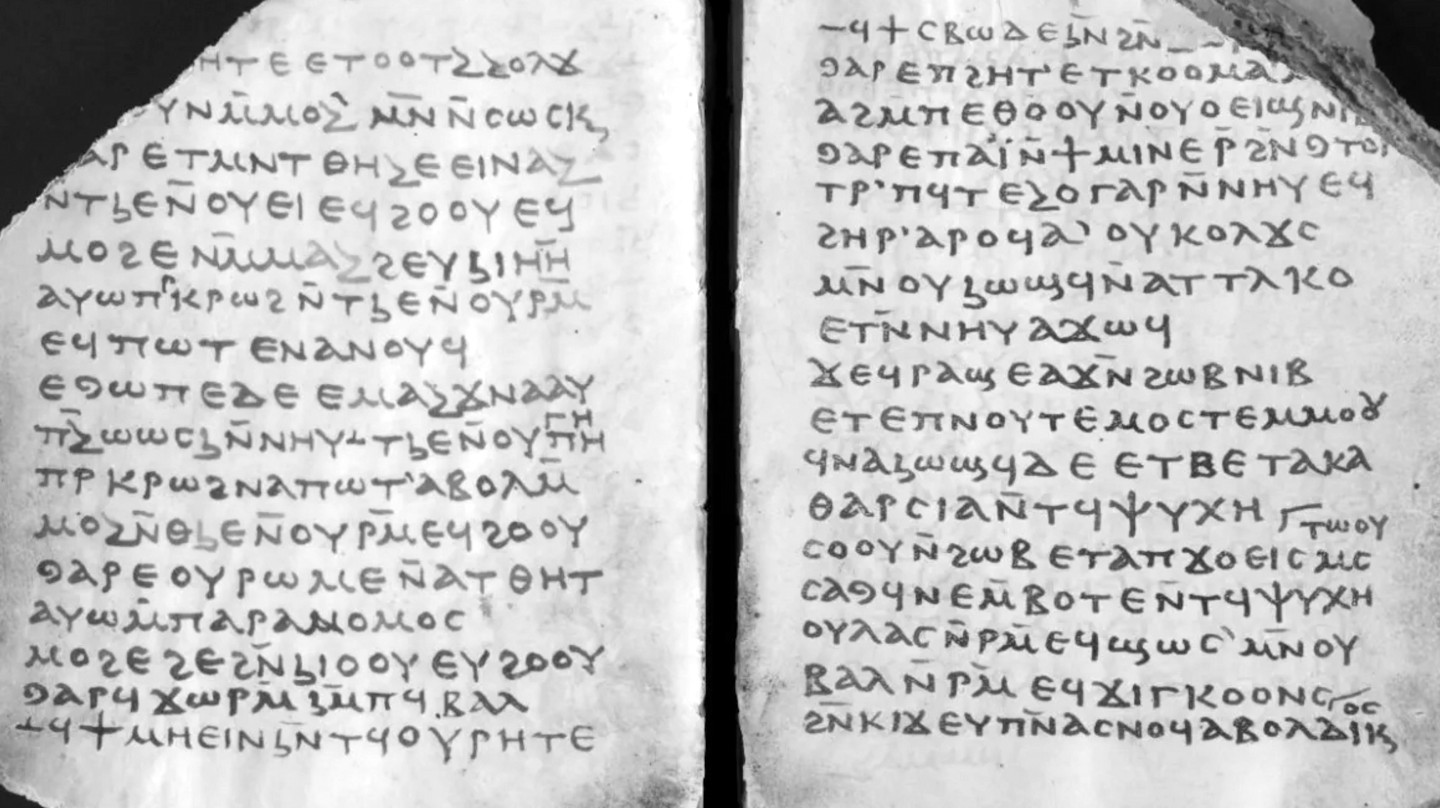 ⲏⲧⲉⲉⲧⲟⲟⲧϩϩⲟⲗϫ
ⲩⲛⲙ̄ⲙⲟϩ` ⲙ̄ⲛ̄ⲛ̄ⲥⲱⲥⲕ
ⲁⲣⲉⲧⲙⲛⲧⲑⲏϩⲉⲉⲓⲛⲁϩ
ⲛⲧⳉⲉⲛ̄ⲟⲩⲉⲓⲉϥϩⲟⲟⲩⲉϥ
ⲙⲟϩⲉⲛⲙ̄ⲙⲁϩϩⲉⲩⳉⲓⲏⲏ̄
ⲁⲩⲱⲡⲕⲣⲱϩⲛ̄ⲧⳉⲉⲛ̄ⲟⲩⲣⲙ̄
ⲉϥⲡⲱⲧ ⲉⲛⲁⲛⲟⲩϥ
ⲉϣⲱⲡⲉⲇⲉⲉⲙⲁϩϫⲛⲁⲁⲩ
ⲡϩ̄ⲱⲱⲥⳉⲛ̄ⲛⲏⲩ ⲧⳉⲉⲛ̄ⲟⲩⲡⲏⲅⲏ
ⲡⲣⲕⲣⲱϩⲛⲁⲡⲱⲧ'ⲁⲃⲟⲗⲙ̄
ⲙⲟϩⲛ̄ⲑⳉⲉⲛ̄ⲟⲩⲣⲙ̄ⲉϥϩⲟⲟⲩ
ϣⲁⲣⲉⲟⲩⲣⲱⲙⲉⲛ̄ⲁⲧⲑⲏⲧ
ⲁⲩⲱⲙ̄ⲡⲁⲣⲁⲛⲟⲙⲟⲥ
ⲙⲟϩⲉϩⲉϩⲛ̄ⳉⲓⲟⲟⲩⲉⲩϩⲟⲟⲩ
ϣⲁⲣϥϫⲱⲣⲙ̄ⳉⲙ̄ⲡϥⲃⲁⲗ
ϥϯⲙⲏⲉⲓⲛⳉⲛ̄ⲧϥⲟⲩⲣⲏⲧⲉ
ϥϯⲥⲃⲱⲇⲉⳉⲛ̄ϩⲛ̄
ϣⲁⲣⲉⲡϩⲏⲧ'ⲉⲧⲕⲟⲟⲙⲁⲭ
ⲁϩⲙ̄ⲡⲉⲑⲟⲟⲩⲛ̄ⲟⲩⲟⲉⲓϣⲛⲓ
ϣⲁⲣⲉⲡⲁϊⲛ̄ϯⲙⲓⲛⲉⲣ̄ϩⲛ̄ϣⲧⲟⲣ
ⲧⲣ'ⲡϥⲧⲉϩⲟⲅⲁⲣⲛ̄ⲛⲏⲩⲉϥ
ϩⲏⲣ'ⲁⲣⲟϥⲁ` ⲟⲩⲕⲟⲗϫⲥ
ⲙⲛ̄ⲟⲩⳉⲱϣϥⲛ̄ⲁⲧⲧⲗⲕⲟ
ⲉⲧⲛ̄ⲛⲏⲩⲁϫⲱϥ
ϫⲉϥⲣⲁϣⲉⲁϫⲛ̄ϩⲱⲃⲛⲓⲃ
ⲉⲧⲉⲡⲛⲟⲩⲧⲉⲙⲟⲥⲧⲉⲙⲙⲟⲩ
ϥⲛⲁⳉⲱϣϥⲇⲉⲉⲧⲃⲉⲧⲁⲕⲁ
ⲑⲁⲣⲥⲓⲁⲛ̄ⲧϥⲯⲩⲭⲏ ⲧⲱⲟⲩ
ⲥⲟⲟⲩⲛ̄ϩⲱⲃⲉⲧⲁⲡϫⲟⲉⲓⲥⲙⲥ
ⲥⲁϣϥⲛⲉⲙ̄ⲃⲟⲧⲉⲛ̄ⲧϥⲯⲩⲭⲏ
ⲟⲩⲗⲁⲥⲛ̄ⲣⲙ̄ⲉϥϣⲱⲥ`ⲙⲛ̄ⲟⲩ
ⲃⲁⲗⲛ̄ⲣⲙ̄ⲉϥϫⲓⲅⲕⲟⲟⲛⲥ
ϩⲛ̄ⲕⲓϫⲉⲩⲡⲛ̄ⲁⲥⲛⲟϥⲁⲃⲟⲗⲇⲓⲕⲟⲥ